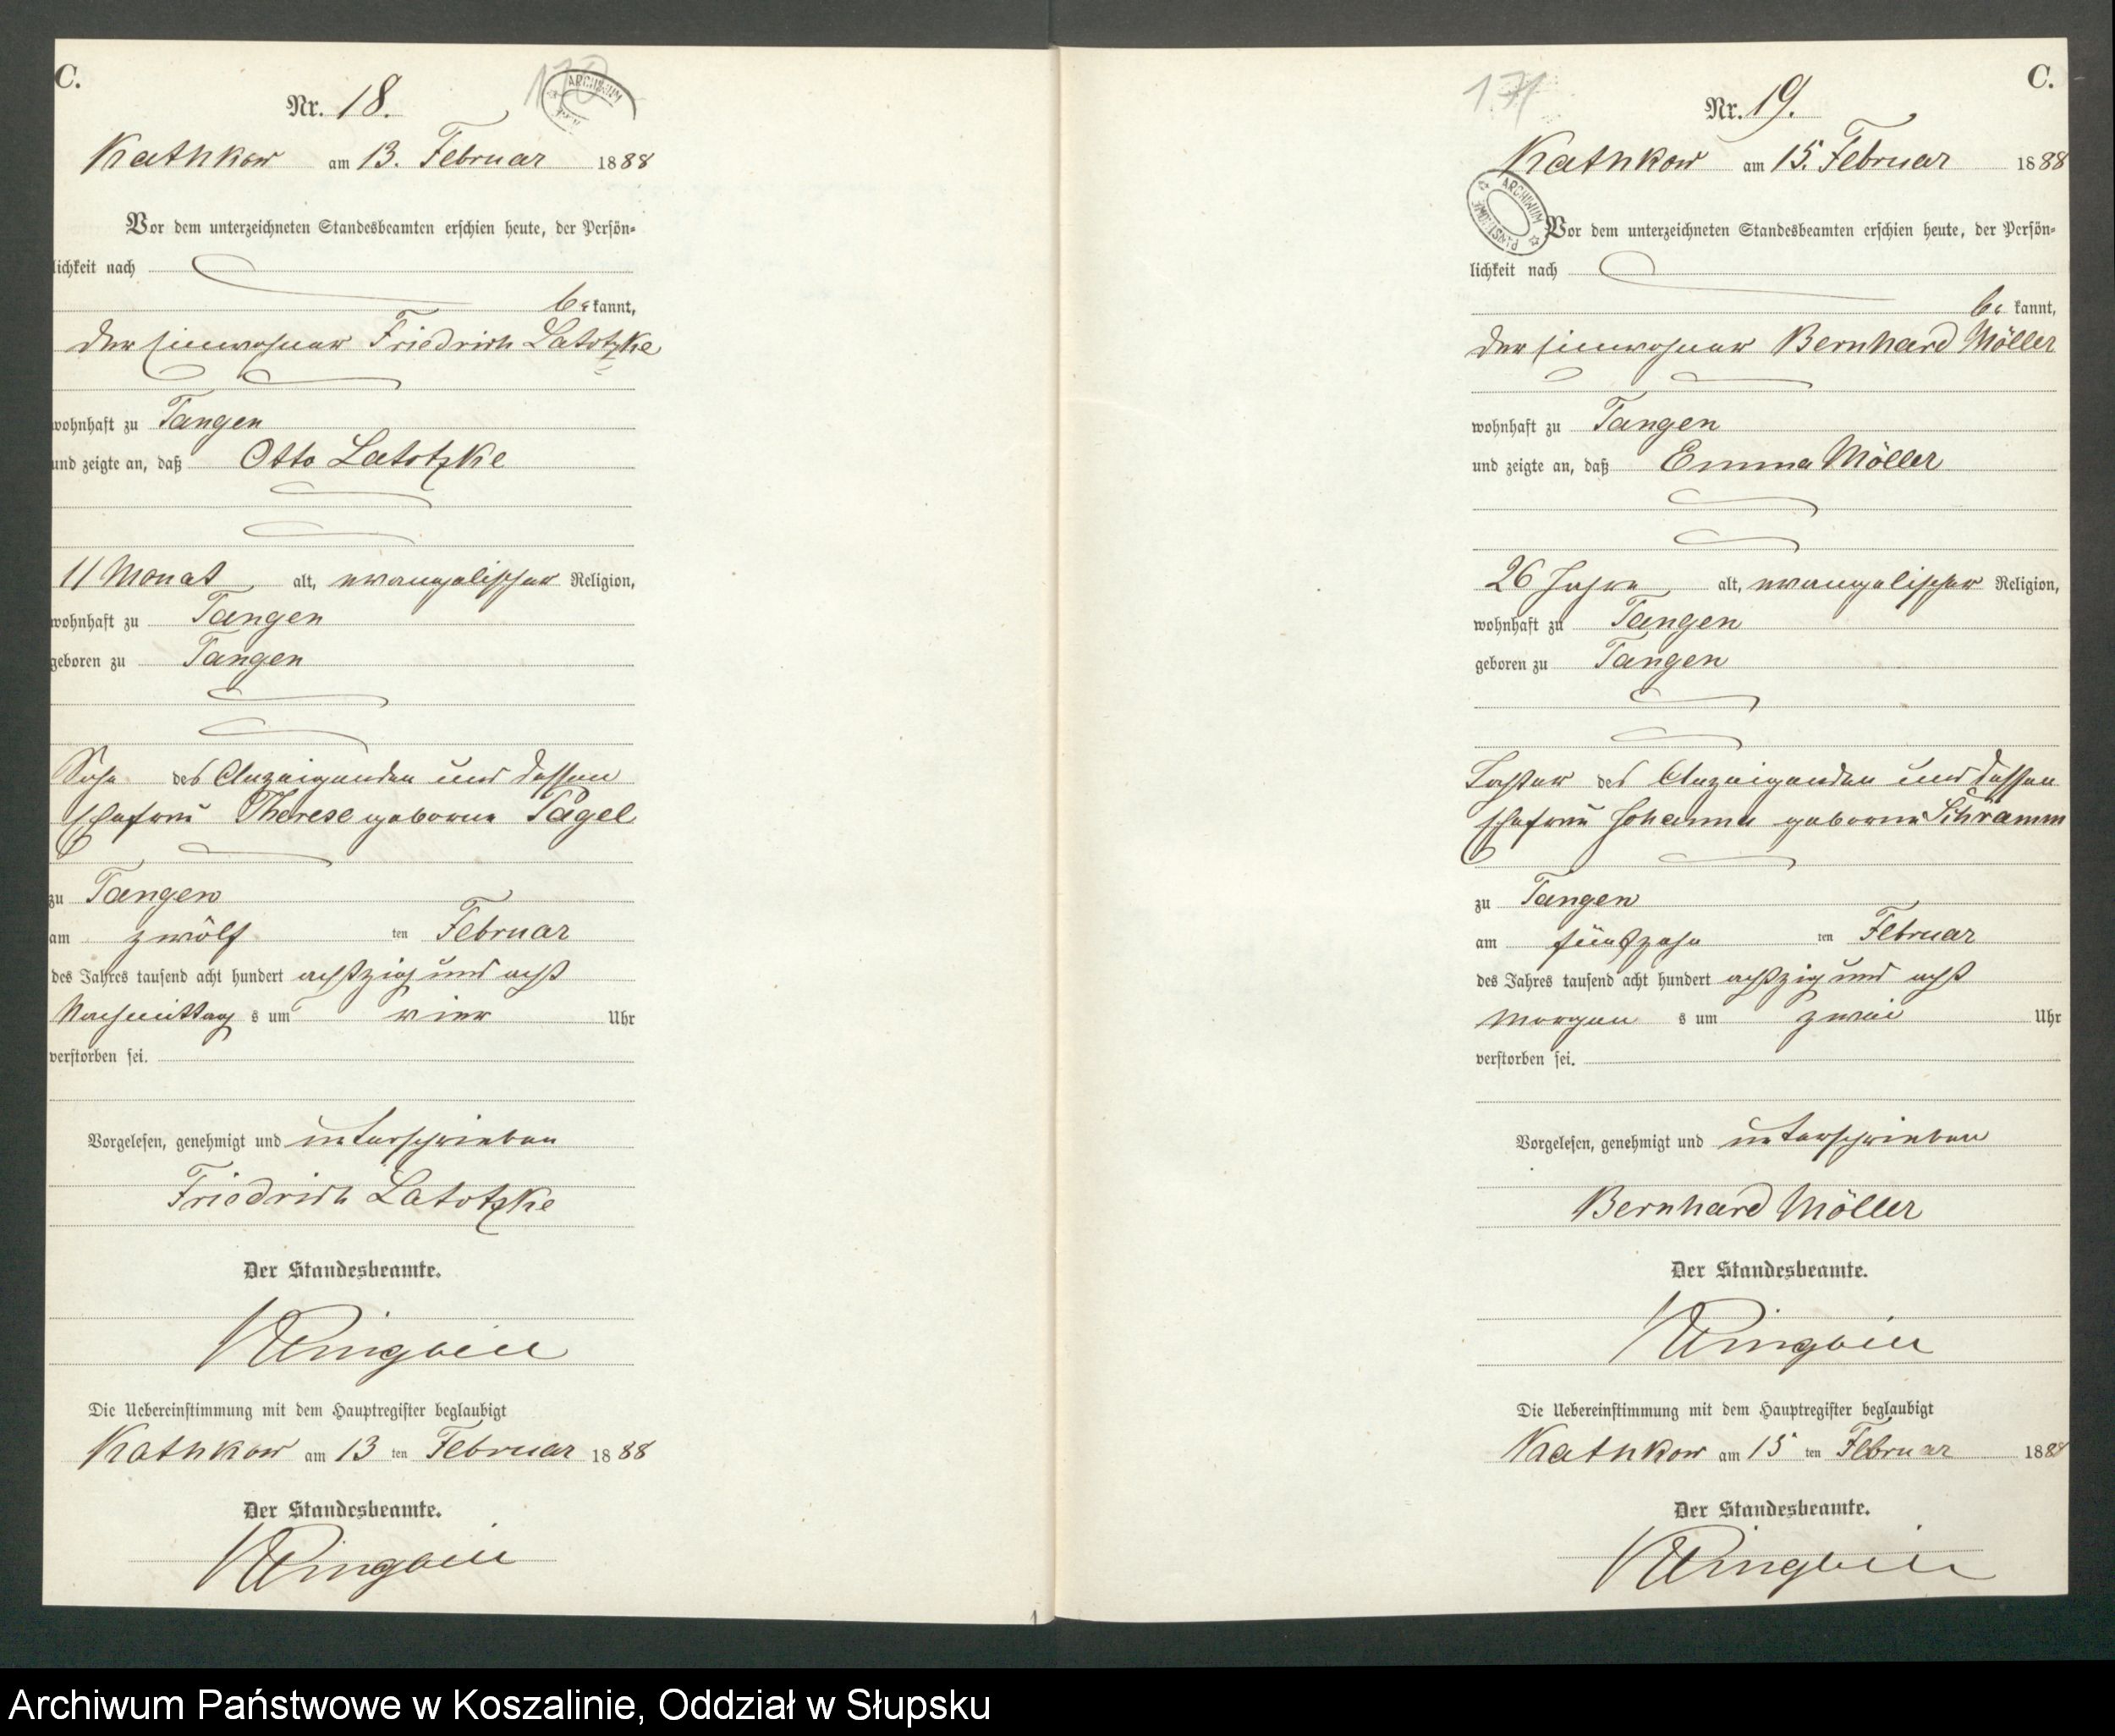 C.
Nr. 18.
170
ARCHIWUM
Kathkow am 13. Februar 1888
Vor dem unterzeichneten Standesbeamten erschien heute, der Persön-
lichkeit nach
be kannt,
der Einwohner Friedrich Latotzke
wohnhaft zu Tangen
und zeigte an, daß Otto Latotzke
11 Monat alt, evangelischer Religion,
wohnhaft zu Tangen
geboren zu Tangen
Sohn des Anzeigenden und dessen
Ehefrau Therese geborne Pagel
zu Tangen
am zwölf ten Februar
des Jahres tausend acht hundert achtzig und acht
Nachmittag s um vier Uhr
verstorben sei.
Vorgelesen, genehmigt und unterschrieben
Friedrich Latotzke
Der Standesbeamte.
Die Uebereinstimmung mit dem Hauptregister beglaubigt
Kathkow am 13 ten Februar 1888
Der Standesbeamte.
C.
171
Nr. 19.
Kathkow am 15. Februar 1888
ARCHIWUM PAŃSTWOWE
Vor dem unterzeichneten Standesbeamten erschien heute, der Persön-
lichkeit nach
be kannt,
der Einwohner Bernhard Möller
wohnhaft zu Tangen
und zeigte an, daß Emma Möller
26 Jahre alt, evangelischer Religion,
wohnhaft zu Tangen
geboren zu Tangen
Tochter des Anzeigenden und dessen
Ehefrau Johanna geborne Schramm
zu Tangen
am fünfzehn ten Februar
des Jahres tausend acht hundert achtzig und acht
Morgen s um zwei Uhr
verstorben sei.
Vorgelesen, genehmigt und unterschrieben
Bernhard Möller
Der Standesbeamte.
Die Uebereinstimmung mit dem Hauptregister beglaubigt
Kathkow am 15 ten Februar 1888
Der Standesbeamte.
Archiwum Państwowe w Koszalinie, Oddział w Słupsku